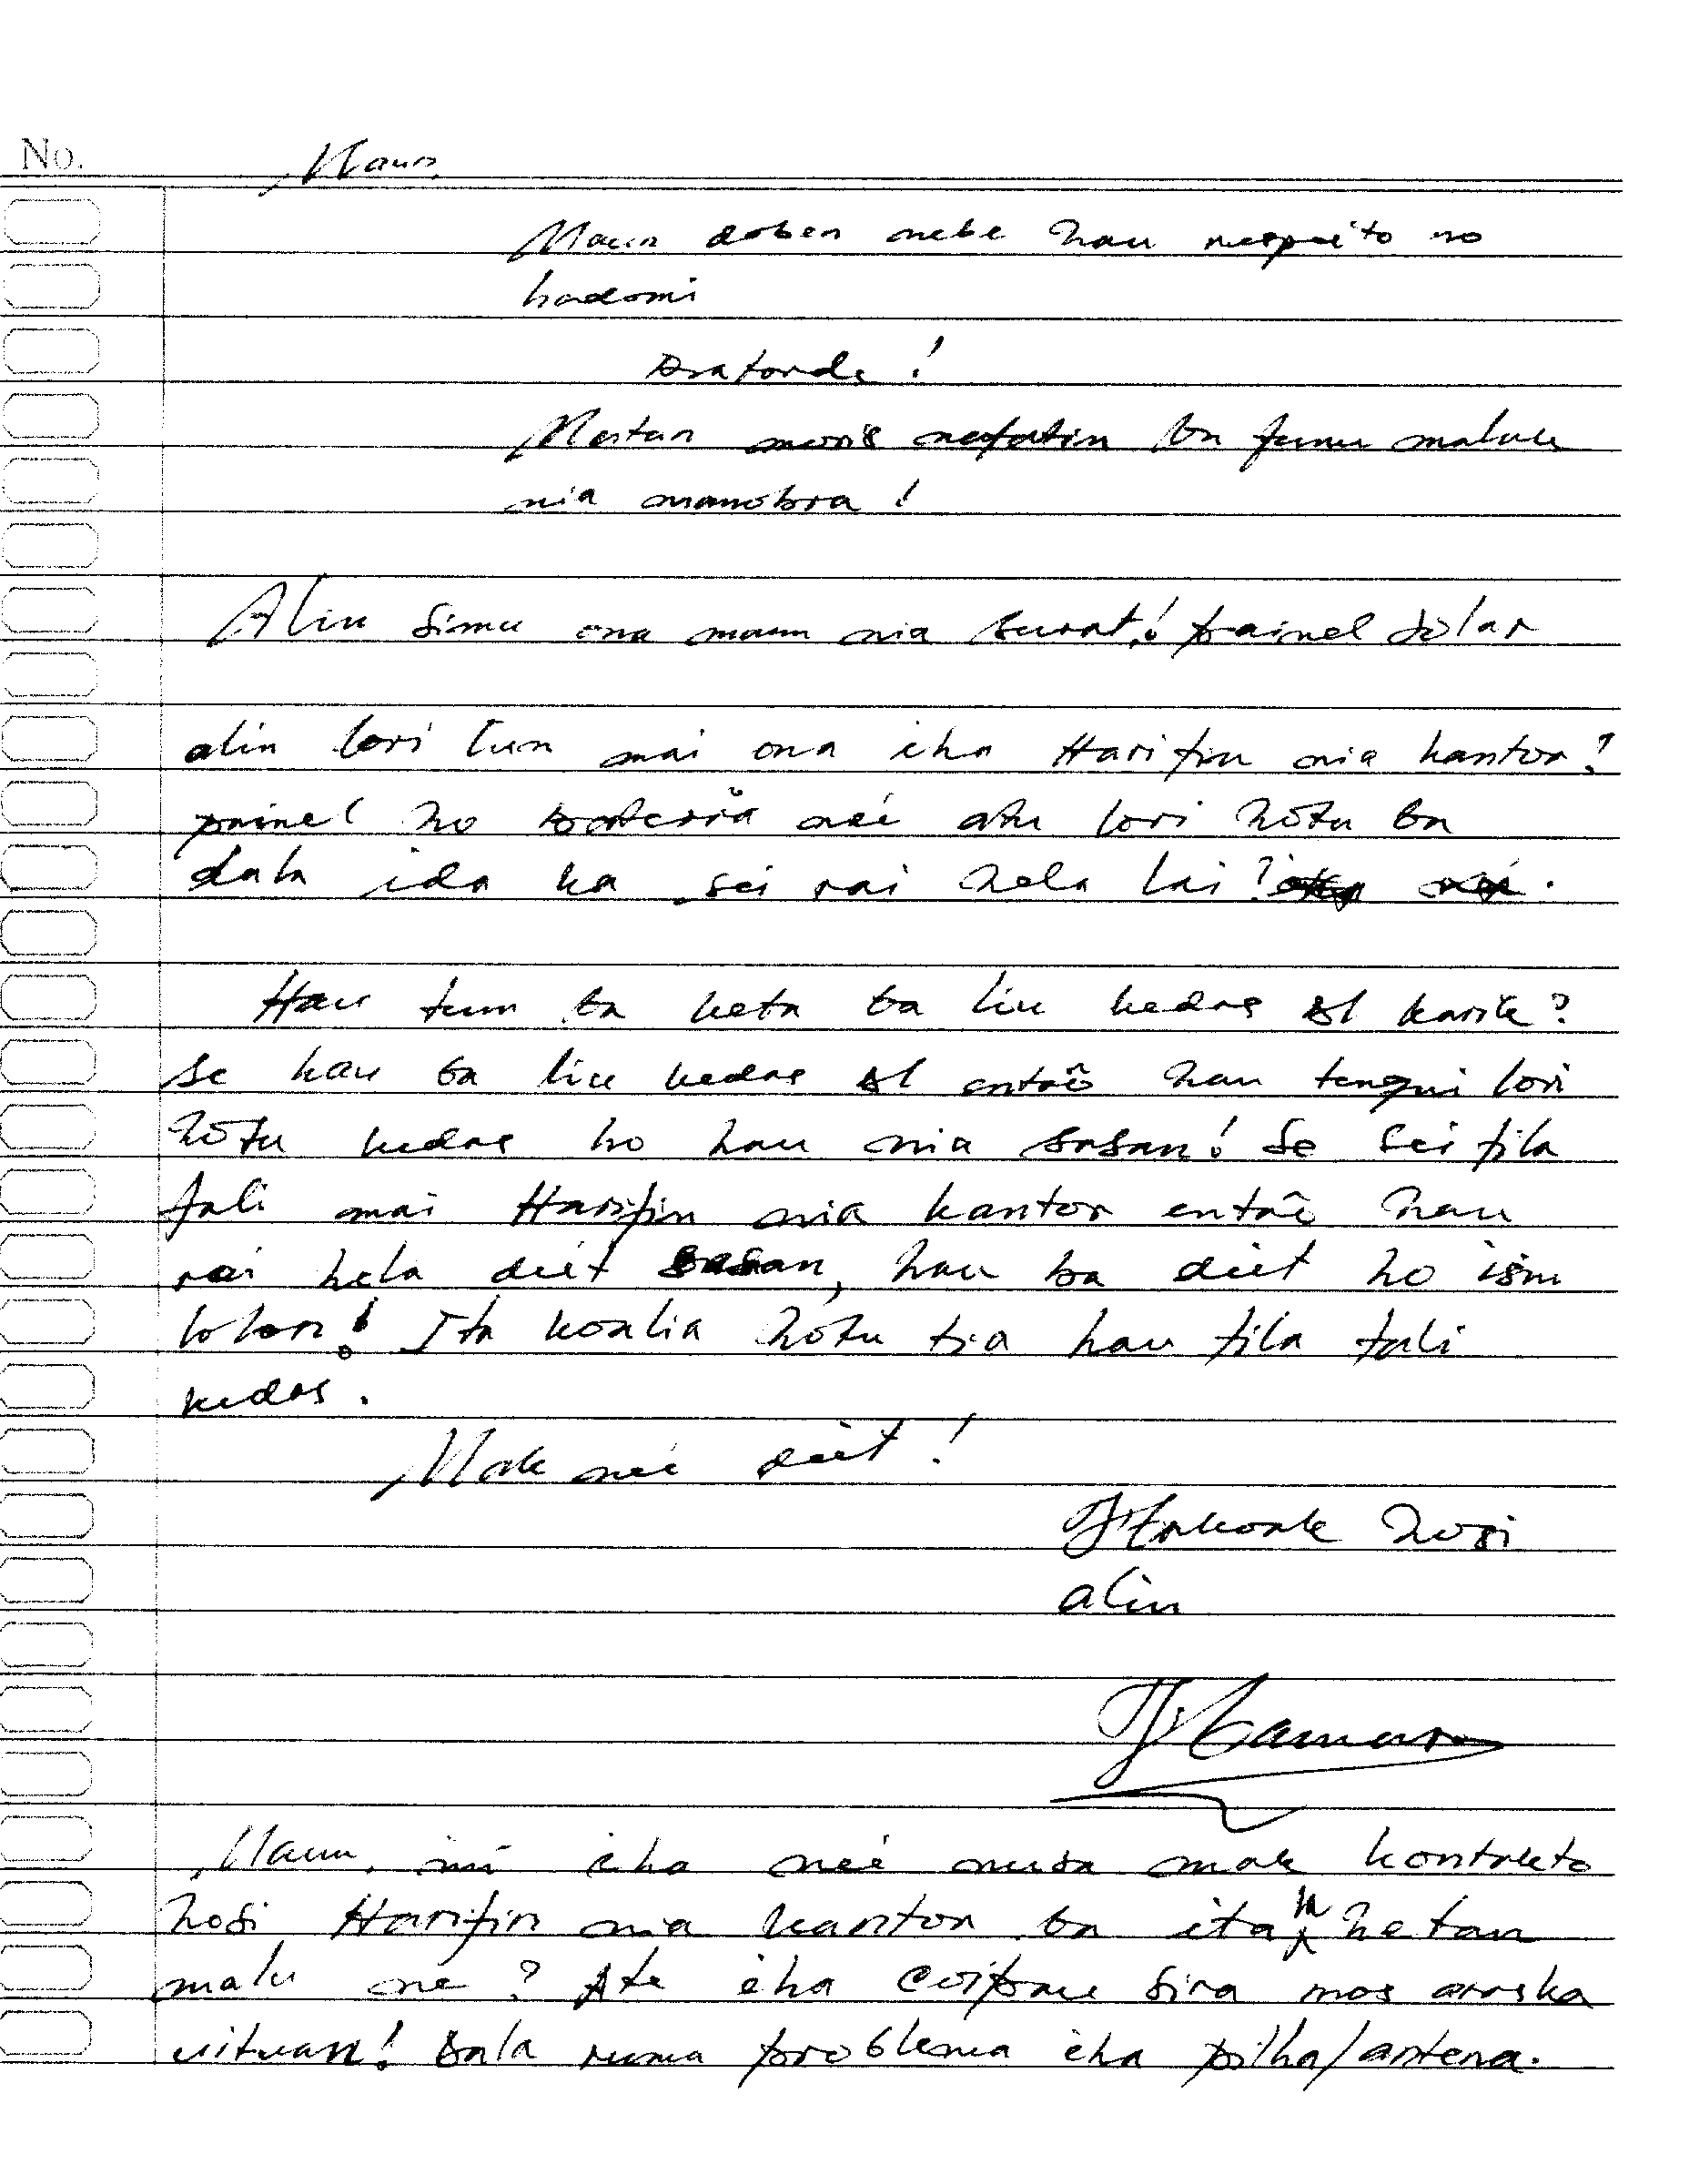 No. Maun
Maun doben nebe hau respeito no
hadomi
Boatarde!
Maitan moris nafatin ba funu maluk
nia manobra!
Alin simu ona maun nia surat! painel solar
alin lori tun mai ona iha Harifin nia kantor!
painel ho bateria neé atu lori hotu ba
dala ida ka sei rai hela lai?
Hau tun ba keta ba liu kedas DL karik?
se hau ba liu kedas DL entaõ hau tenqui lori
hotu kedas ho hau nia sasan! Se sei fila
fali mai Harifin nia kantor entaõ hau
rai hela deit sasan, hau ba deit ho isin
lolon! Ita koalia hotu tia hau fila fali
kedas.
Mak neé deit!
Hakoak hosi
alin
Maun, imi iha neé nusa mak kontakto
hosi Harifin nia kantor ba ita la hetan
malu ne? Ate iha sira mos araska
uituan! Dala ruma problema iha pilha/antena.